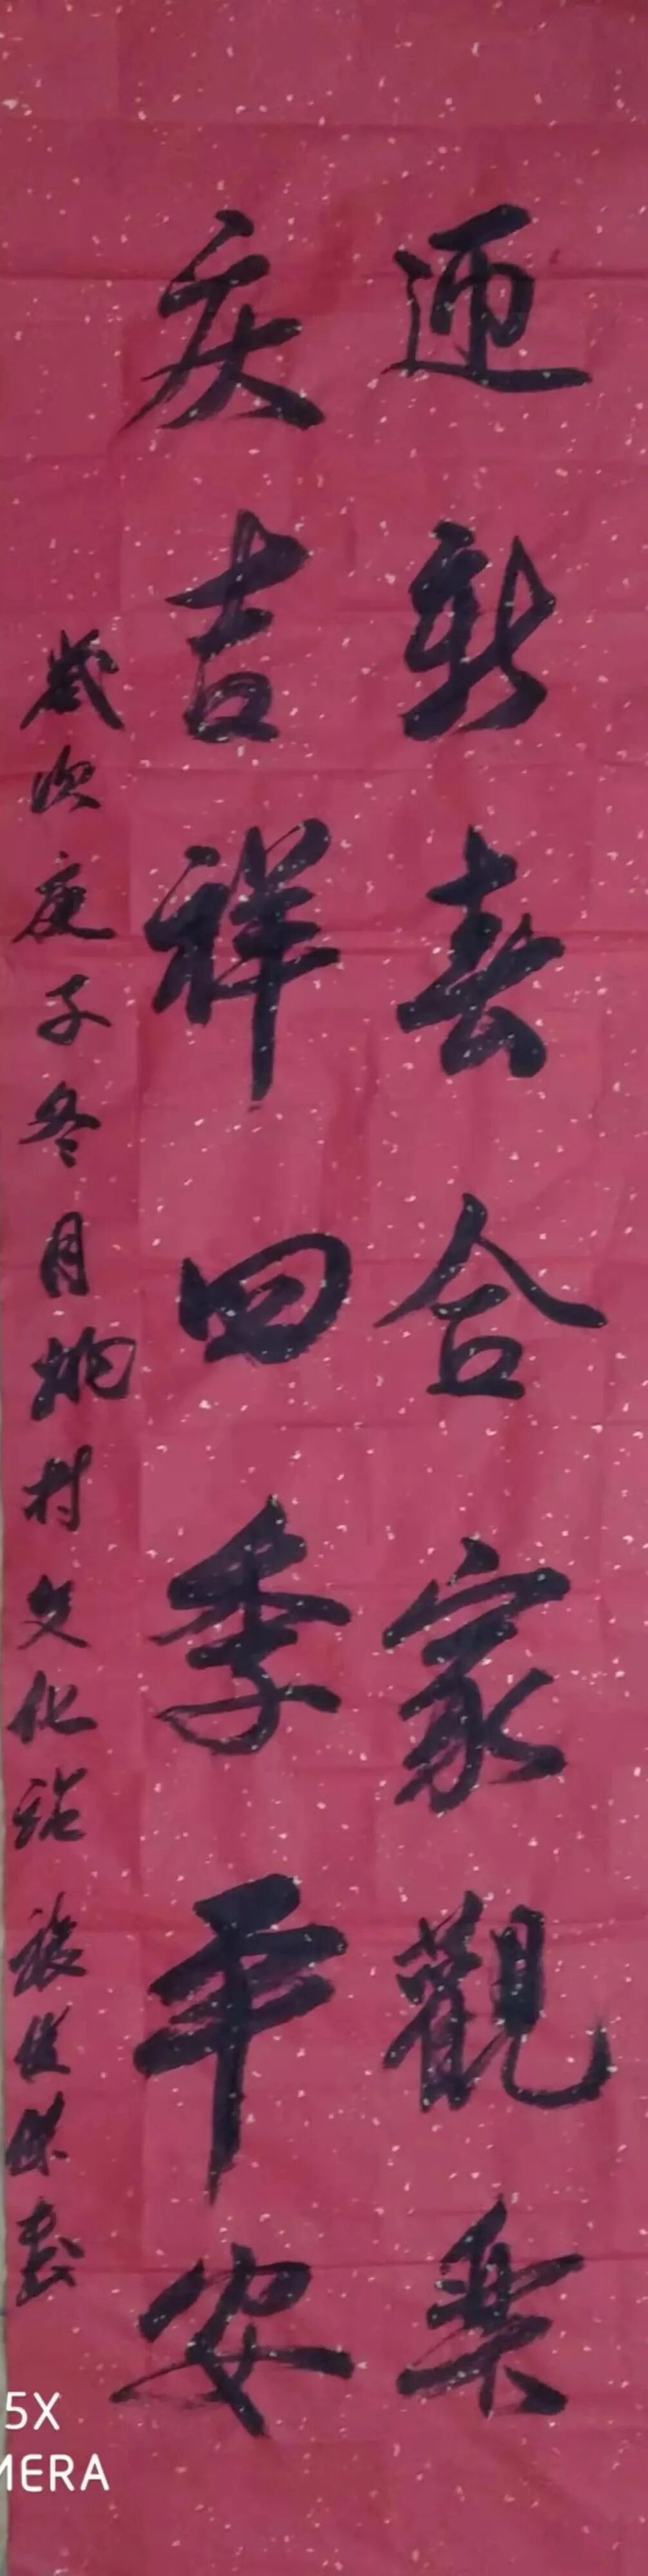 迊新春合家觀樂
庆吉祥四季平安
歲次庚子冬月 村文化站 俊 書
5X
MERA